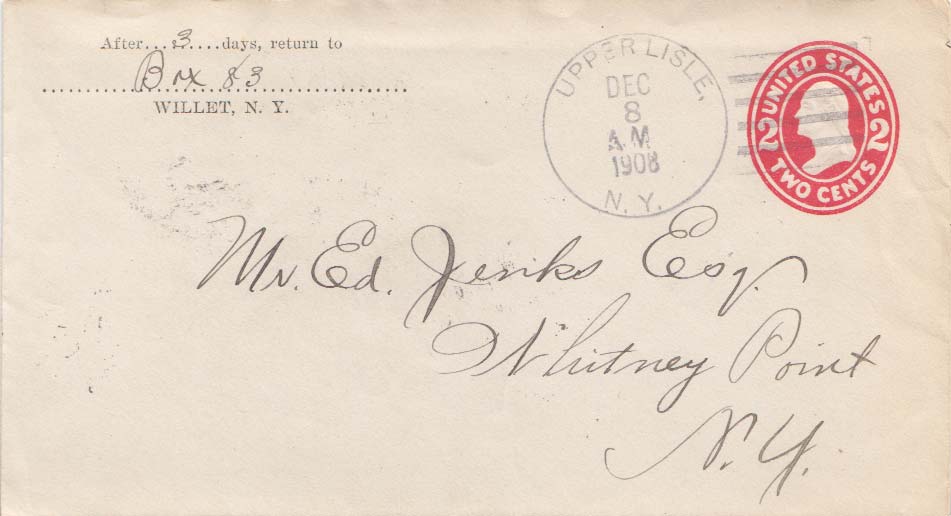 After...3....days, return to
Box 83
WILLET, N. Y.
UPPER LISLE,
DEC
8
A.M
1908
N. Y.
UNITED STATES
2 2
TWO CENTS
Mr. Ed. Jenks Esq.
Whitney Point
N.Y.